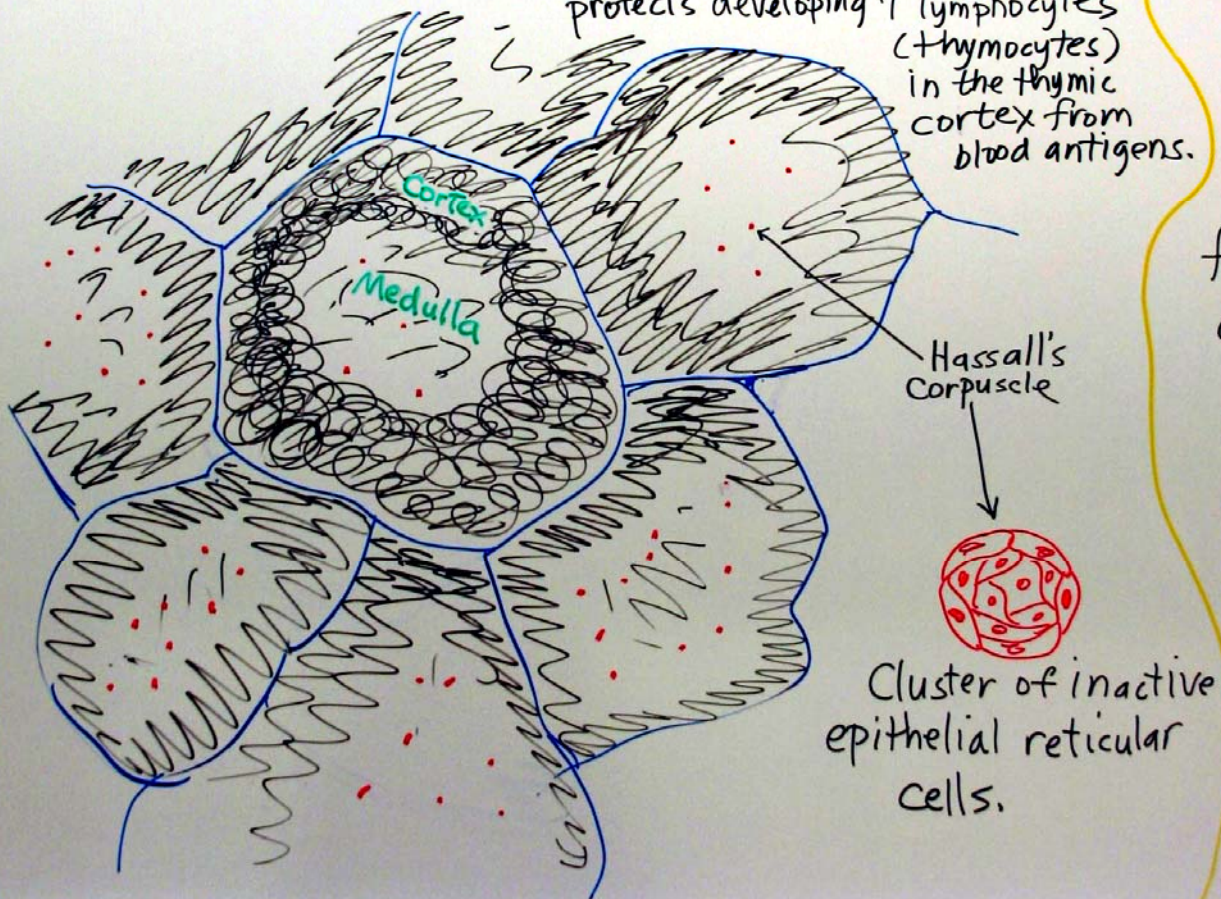 protects developing T lymphocytes
(thymocytes)
in the thymic
cortex from
blood antigens.
Cortex
Medulla
Hassall's
Corpuscle
Cluster of inactive
epithelial reticular
cells.